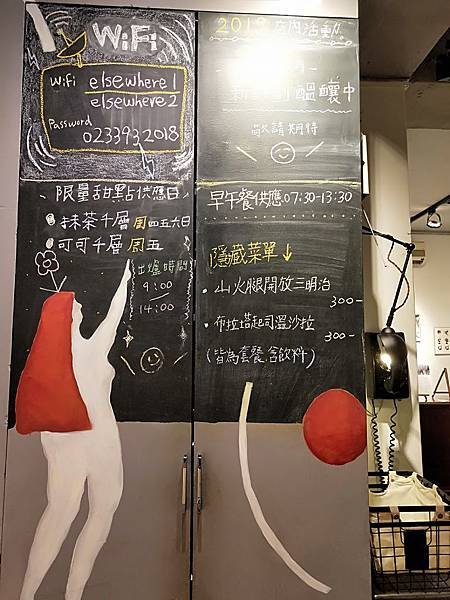 WiFi
WiFi elsewhere1
elsewhere2
Password
0233932018
限量甜點供應日
抹茶千層 周四五六日
可可千層 周五
出爐時間
9:00
14:00
2018 店內活動
醞釀中
敬請期待
早午餐供應07:30-13:30
隱藏菜單↓
·山火腿開放三明治
300-
·布拉塔起司溫沙拉
300-
(皆為套餐,含飲料)